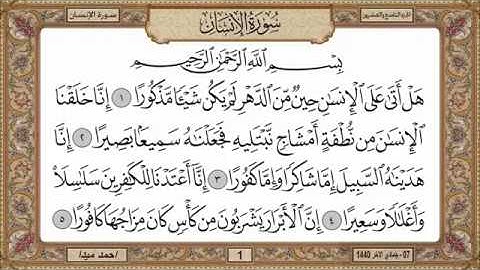 سورة الإنسان
الجزء التاسع والعشرون
سُورَةُ الإِنسَانِ
بِسْمِ اللَّهِ الرَّحْمَٰنِ الرَّحِيمِ
هَلْ أَتَىٰ عَلَى الْإِنسَانِ حِينٌ مِّنَ الدَّهْرِ لَمْ يَكُن شَيْئًا مَّذْكُورًا ١ إِنَّا خَلَقْنَا
الْإِنسَانَ مِن نُّطْفَةٍ أَمْشَاجٍ نَّبْتَلِيهِ فَجَعَلْنَاهُ سَمِيعًا بَصِيرًا ٢ إِنَّا
هَدَيْنَاهُ السَّبِيلَ إِمَّا شَاكِرًا وَإِمَّا كَفُورًا ٣ إِنَّا أَعْتَدْنَا لِلْكَافِرِينَ سَلَاسِلَا
وَأَغْلَالًا وَسَعِيرًا ٤ إِنَّ الْأَبْرَارَ يَشْرَبُونَ مِن كَأْسٍ كَانَ مِزَاجُهَا كَافُورًا ٥
07 - جمادي الآخر 1440
1
/حمد سيد/